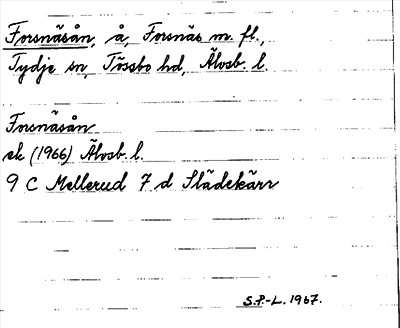 Forsnäsån, å, Forsnäs m. fl.,
Tydje sn, Tössbo hd, Älvsb. l.
Forsnäsån
ek (1966) Älvsb. l.
9 C Mellerud 7 d Slädekärr
S.P.-L. 1967.